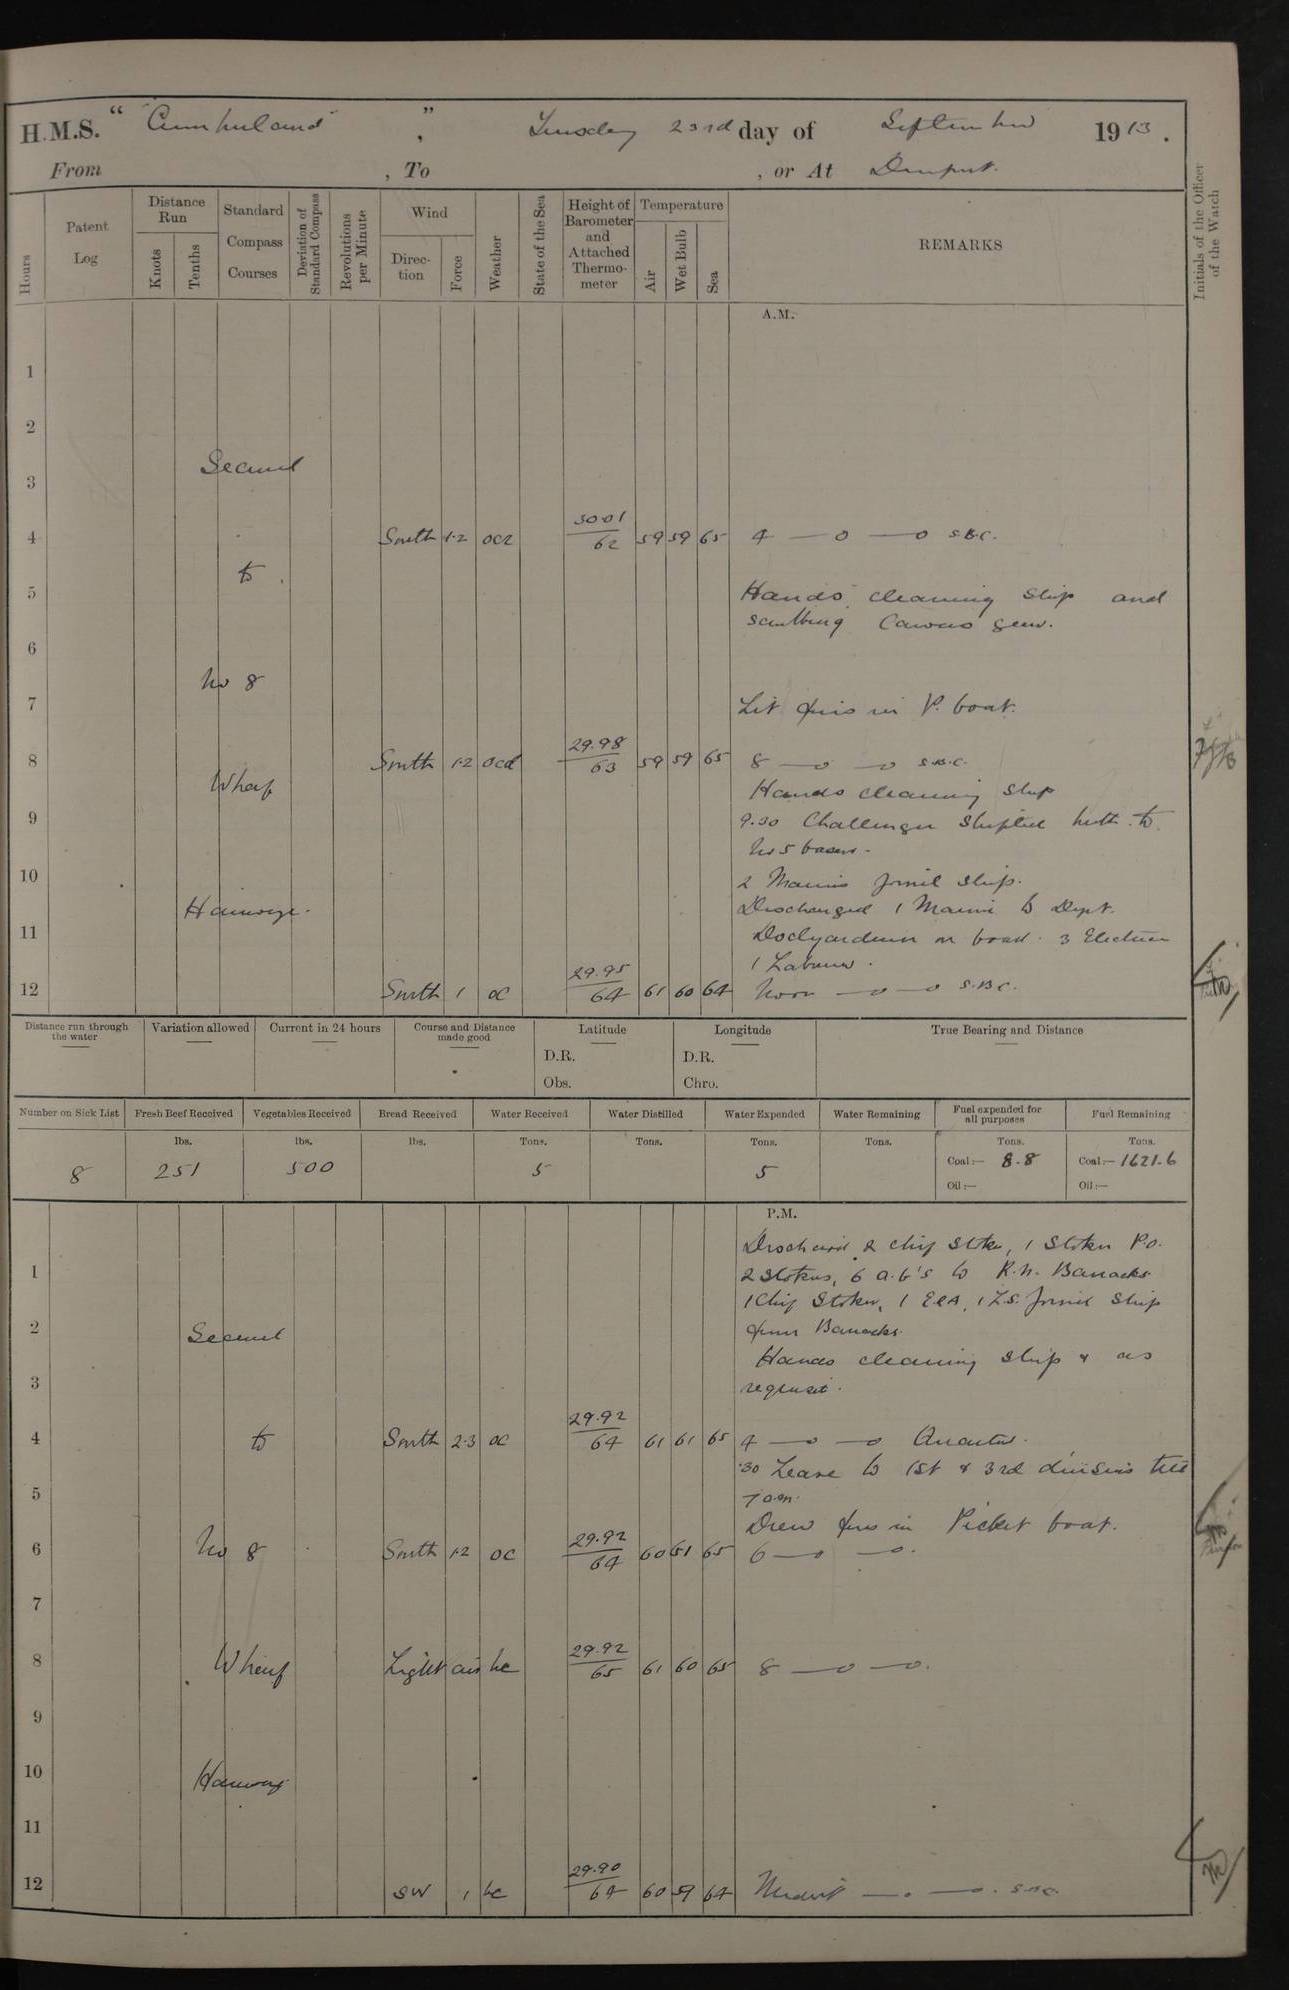 H.M.S. "Cumberland", Tuesday 23rd day of September 1913.
From , To , or At Devonport.
Hours
Patent Log
Distance Run
Knots
Tenths
Standard Compass Courses
Deviation of Standard Compass
Revolutions per Minute
Wind
Direction
Force
Weather
State of the Sea
Height of Barometer and Attached Thermometer
Temperature
Air
Wet Bulb
Sea
REMARKS
Initials of the Officer of the Watch
A.M.
1
2
Secured
3
4 South 1.2 ocz 30.01/62 59 59 65 4 —o —o S.B.C.
to
5 Hands cleaning ship and
scrubbing Canvas gear.
6
No 8
7 Lit fires in P. boat.
8 South 1.2 ocd 29.98/63 59 59 65 8 —o —o S.B.C.
Wharf
Hands cleaning ship
9 9.30 Challenger shifted berth to
No 5 basin.
10 2 Marines joined ship.
Hamoaze.
Discharged 1 Marine to Dept.
11 Dockyardmen on board. 3
1 Labourer.
12 South 1 oc 29.95/64 61 60 64 Noon —o —o S.B.C.
Distance run through the water
Variation allowed
Current in 24 hours
Course and Distance made good
Latitude
D.R.
Obs.
Longitude
D.R.
Chro.
True Bearing and Distance
Number on Sick List
Fresh Beef Received
Vegetables Received
Bread Received
Water Received
Water Distilled
Water Expended
Water Remaining
Fuel expended for all purposes
Fuel Remaining
lbs. lbs. lbs. Tons. Tons. Tons. Tons. Tons. Tons.
8 251 500 5 5 Coal:— 8.8 Coal:— 1621.6
Oil:— Oil:—
P.M.
Discharged 2 Chief Stoker, 1 Stoker P.O.
1 2 Stokers, 6 A.B's to R.N. Barracks
1 Chief Stoker, 1 ERA, 1 L.S. joined ship
2 from Barracks.
Secured
Hands cleaning ship & as
3 requisite.
4 to South 2.3 oc 29.92/64 61 61 65 4 —o —o Quarters.
.30 Leave to 1st & 3rd divisions till
5 7 a.m.
Drew fires in Picket boat.
6 No 8 South 1.2 oc 29.92/64 60 61 65 6 —o —o.
7
8 Wharf Light airs bc 29.92/65 61 60 65 8 —o —o.
9
10 Hamoaze
11
12 SW 1 bc 29.90/64 60 59 64 Midnt —. —. S.B.C.